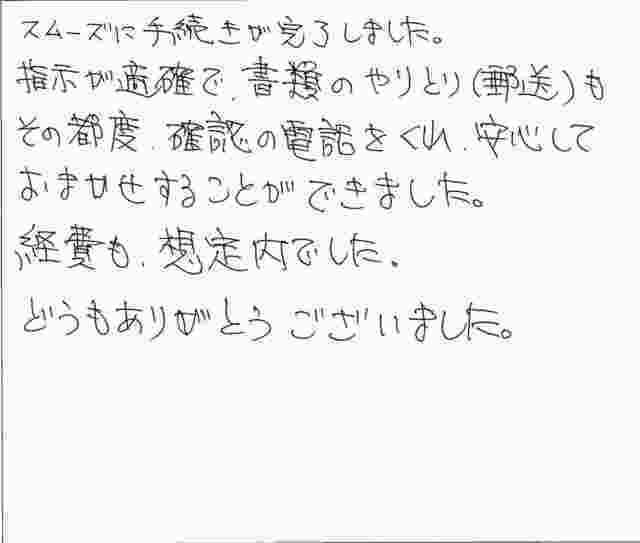 スムーズに手続きが完了しました。
指示が適確で、書類のやりとり(郵送)も
その都度、確認の電話をくれ、安心して
おまかせすることができました。
経費も、想定内でした。
どうもありがとうございました。